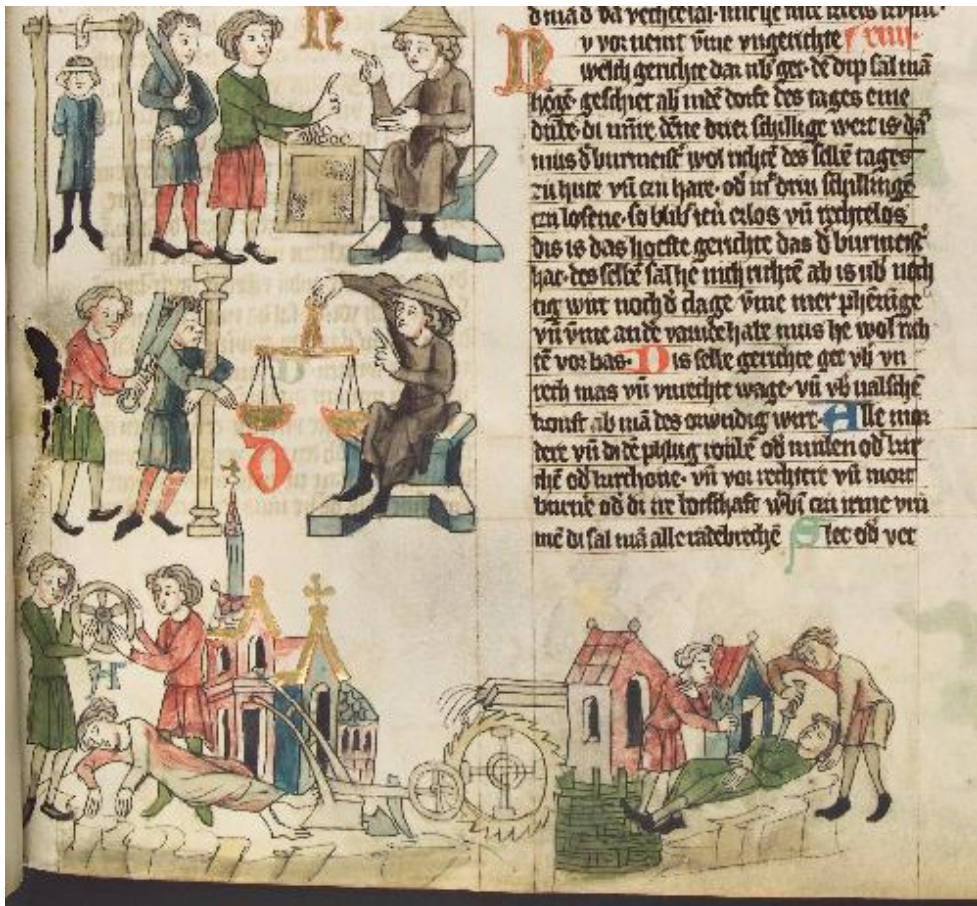 sal
Nv vor nemt v̄me vngerichte
welch gerichte dar ub̄ get· dē dip sal mā
hēgē· geschiet ab indē dorfe des tages eine
dube· di mīre dēne driet schillige wert is dā
mus d̄ burmeist̄ wol richtē des selbē tages
zu hute vn̄ czu hare· od̄ mit drin schillingē
czu losene· so blibt ienr erlos vn̄ rechtelos
dis is das hoeste gerichte das d̄ burmeist̄
hat· des selbē sal he nich richtē ab is ub̄ nach
tig wirt noch d̄ clage v̄me mer phēnige
vn̄ v̄me andē varnde habe mus he wol rich
tē vor bas· Dis selbe gerichte get ub̄ vn
rech mas vn̄ vnrechte wage· vn̄ ub̄ ualschē
kouf· ab mā des wert· Alle mor
dere vn̄ di dē phlug rouben od̄ mulen od̄ kir
chē od̄ kirchoue· vn̄ vor rechtere vn̄ mort
burne od̄ di ire botschaft w̄bin czu irme vru
mē di sal mā alle radebrechē Slet od̄ vet